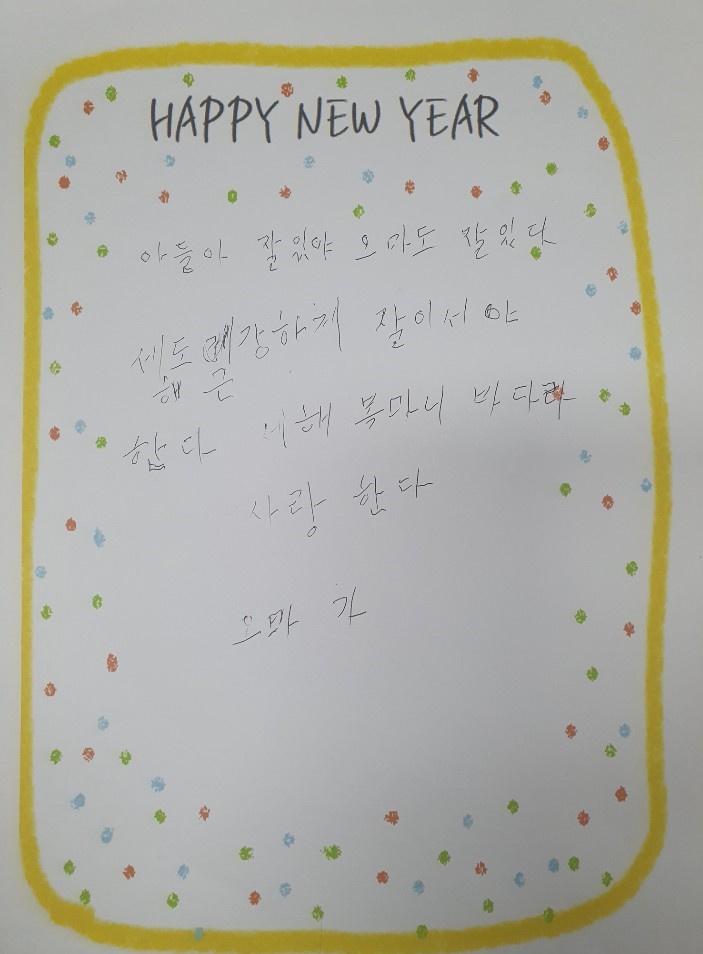 HAPPY NEW YEAR
아들아 잘있야 오마도 잘있다
세도 강하게 잘이서야
해 근
합다 세해 복마니 바다라
사랑 한다
오마 가